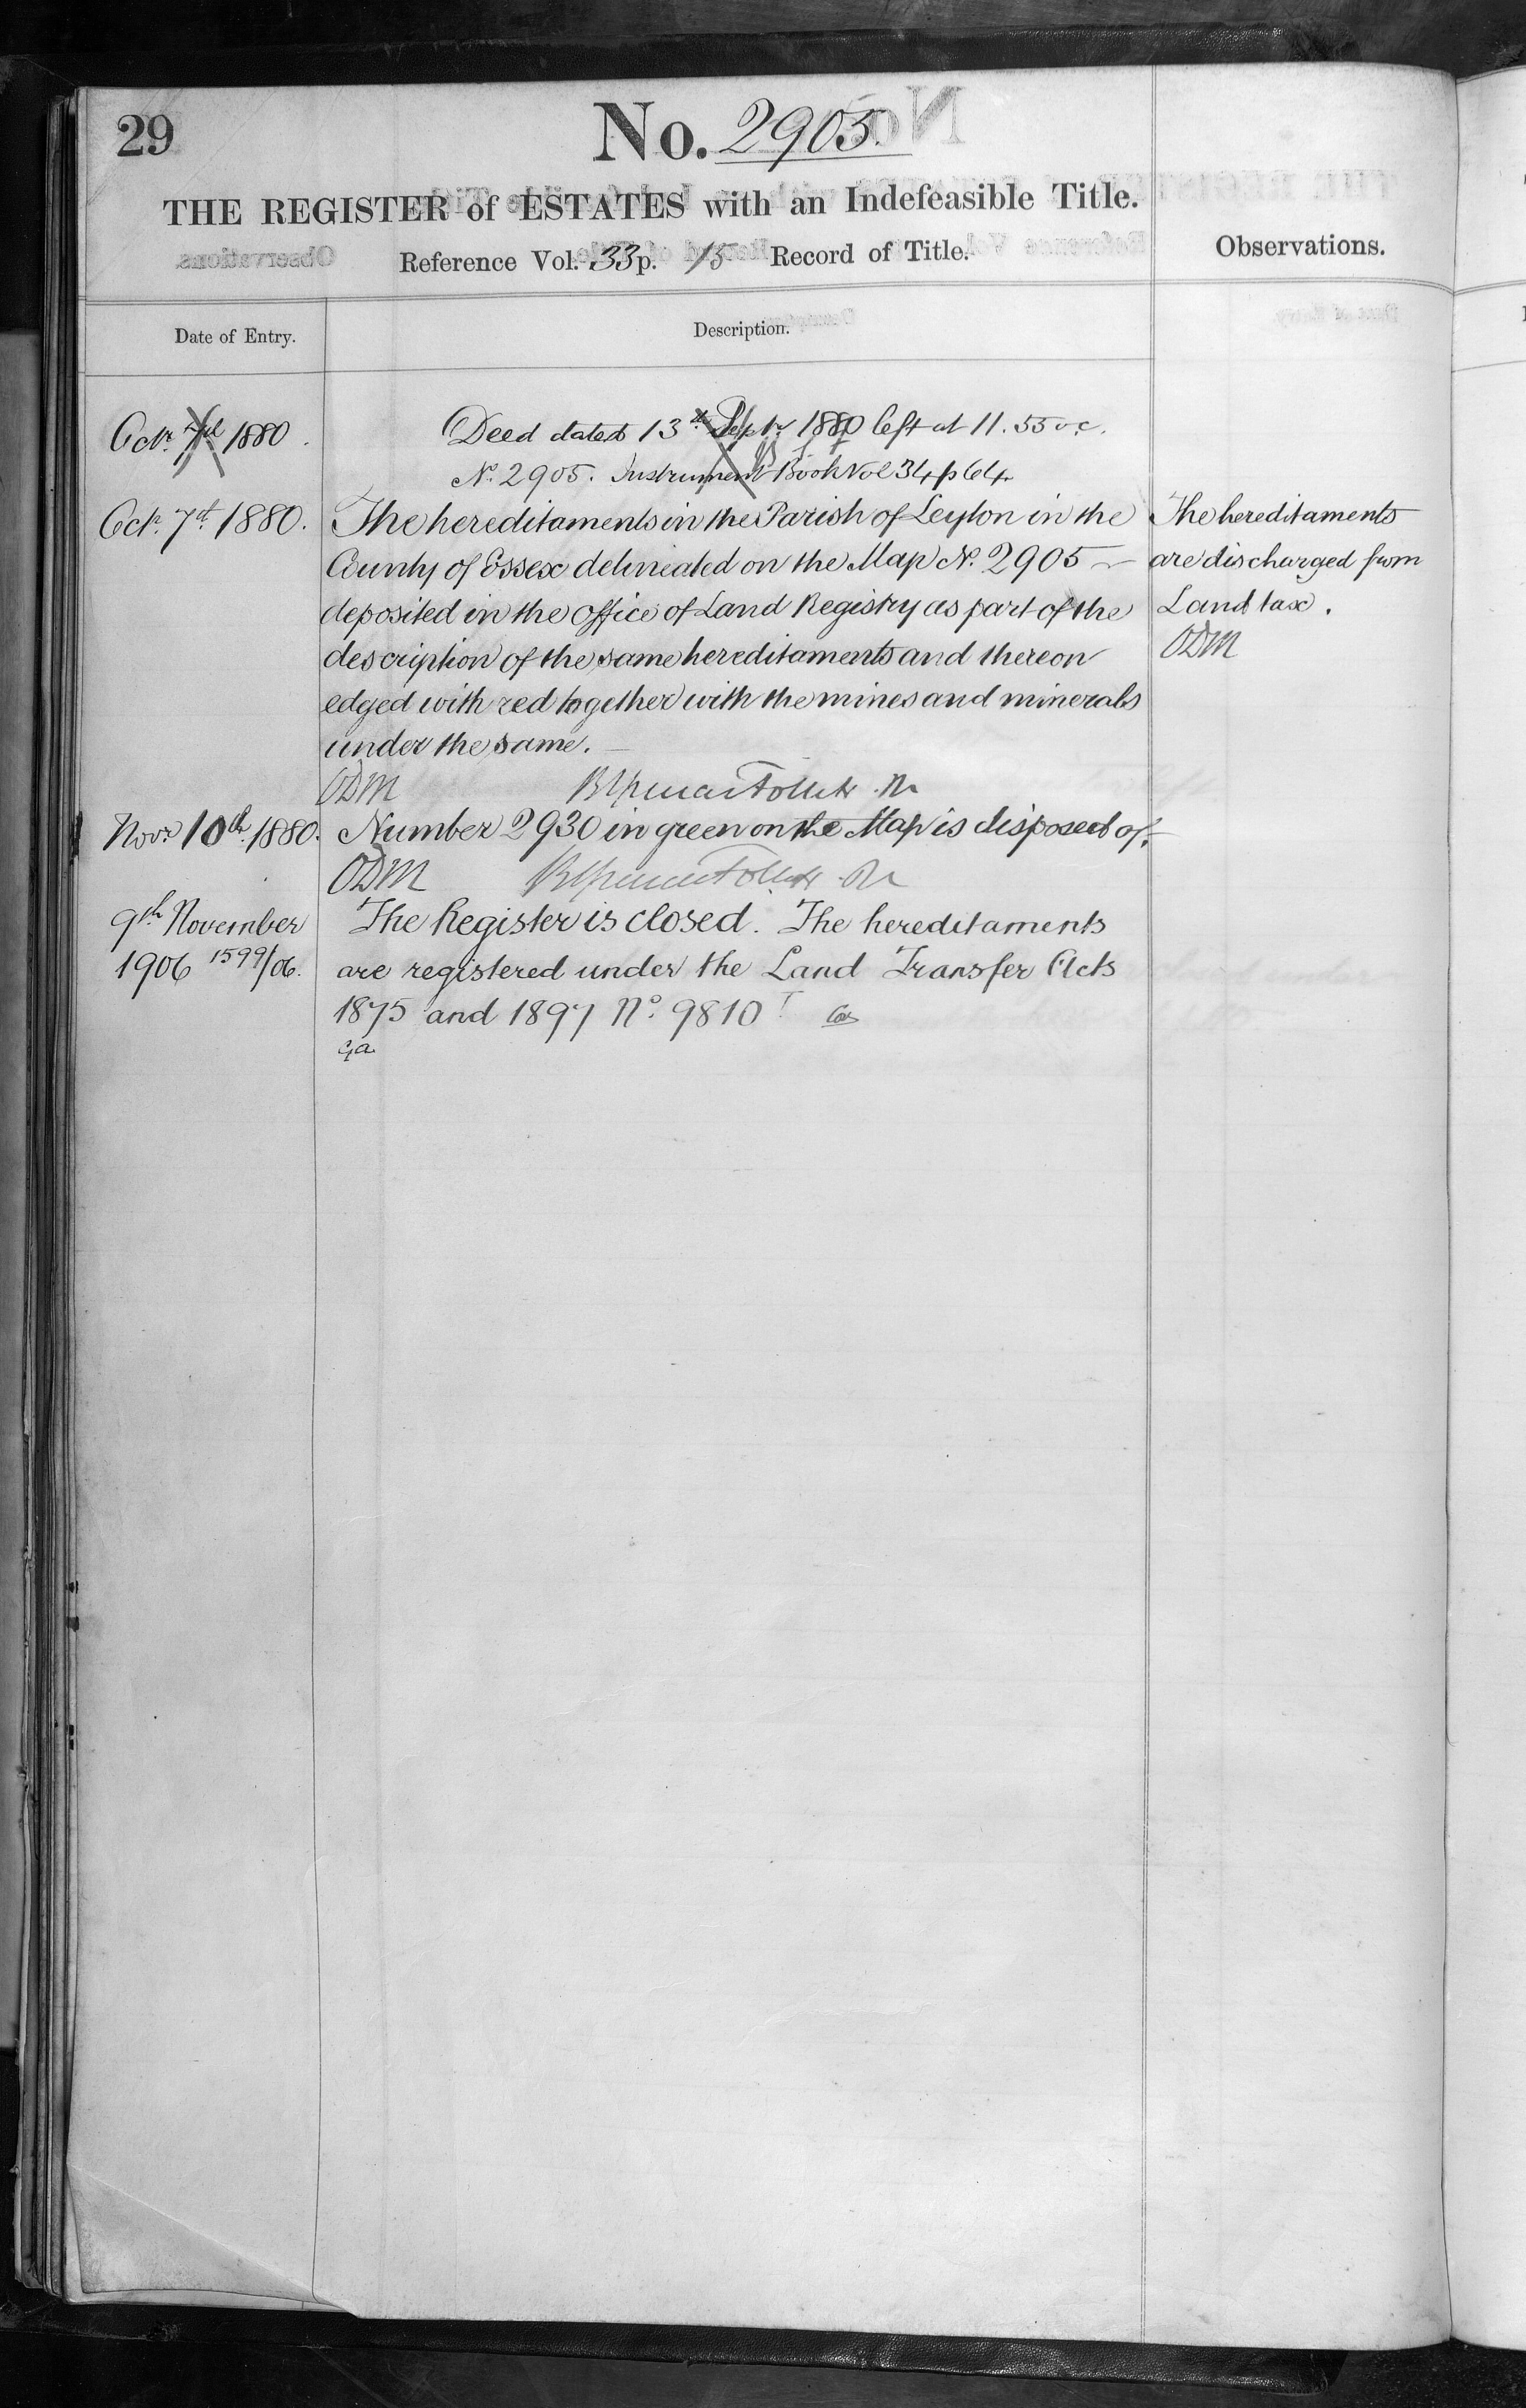 29
No. 2905.
THE REGISTER of ESTATES with an Indefeasible Title.
Reference Vol. 33 p. 15 Record of Title.
Observations.
Date of Entry.
Description.
Octr. 7th 1880.
Deed dated 13th Septr. 1880 left at 11.55 o.c.
No. 2905. Instrument Book Vol 34 p 64
Octr. 7th 1880.
The hereditaments in the Parish of Leyton in the
County of Essex delineated on the Map No. 2905 —
deposited in the office of Land Registry as part of the
description of the same hereditaments and thereon
edged with red together with the mines and minerals
under the same. —
The hereditaments
are discharged from
Land tax.
ODM
ODM
Novr. 10th 1880.
Number 2930 in green on the Map is disposed of.
ODM
9th November
1906 1599/06.
The Register is closed. The hereditaments
are registered under the Land Transfer Acts
1875 and 1897 No. 9810